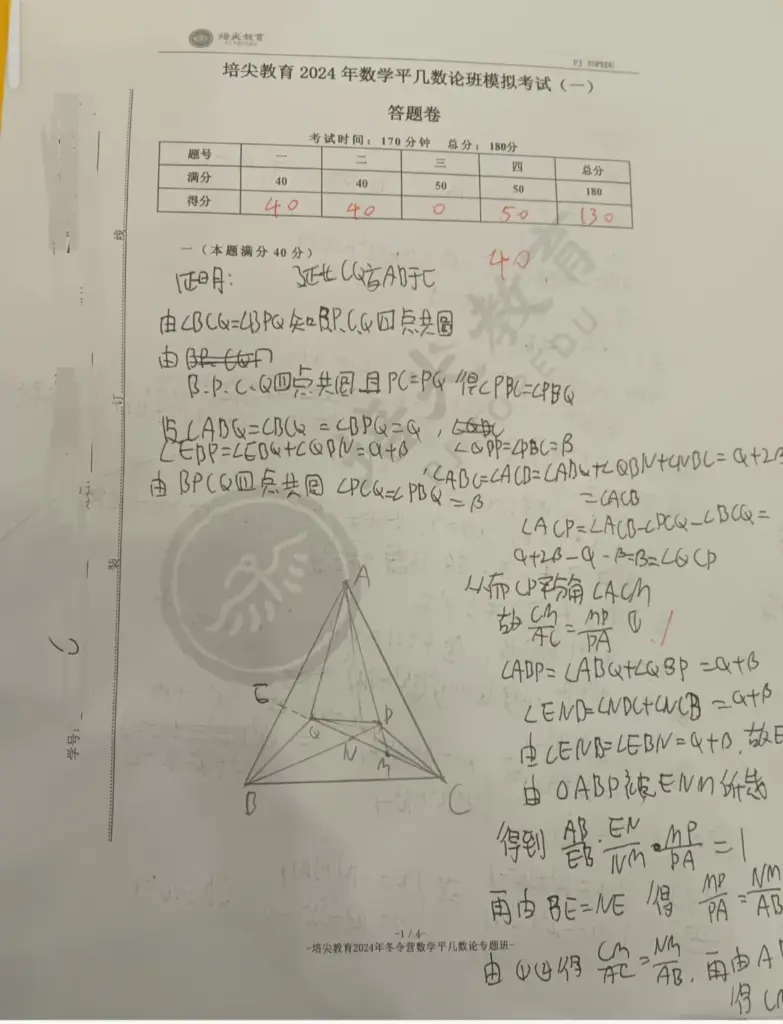 培尖教育
PJ TOPEDU
培尖教育 2024 年数学平几数论班模拟考试（一）
答题卷
考试时间：170 分钟 总分：180分
题号 一 二 三 四 总分
满分 40 40 50 50 180
得分 40 40 0 50 130
一（本题满分 40 分）
40
证明： 延长CQ交AB于E
由∠BCQ=∠BPQ知B.P.C.Q四点共圆
由
B.P.C.Q四点共圆且PC=PQ 得∠PBC=∠PBQ
∠ABQ=∠BCQ=∠BPQ=α，
∠EBP=∠EBQ+∠QBN=α+β ∠QBP=∠PBC=β
由BPCQ四点共圆 ∠PCQ=∠PBQ=β
∠ABC=∠ACB=∠ABQ+∠QBN+∠NBC=α+2β
=∠ACB
∠ACP=∠ACB-∠PCQ-∠BCQ=
α+2β-α-β=β=∠QCP
从而CP平分角∠ACM
故 CM/AC = MP/PA ①
∠ABP=∠ABQ+∠QBP=α+β
∠ENB=∠NBC+∠NCB=α+β
由∠ENB=∠EBN=α+β，故E
由△ABP被ENM所截
得到 AB/EB · EN/NM · MP/PA = 1
再由BE=NE 得 MP/PA = NM/AB
由①②得 CM/AC = NM/AB，再由A
得
A
E
Q
P
N
M
B
C
线
订
装
学号：
-1/4-
-培尖教育2024年冬令营数学平几数论专题班-